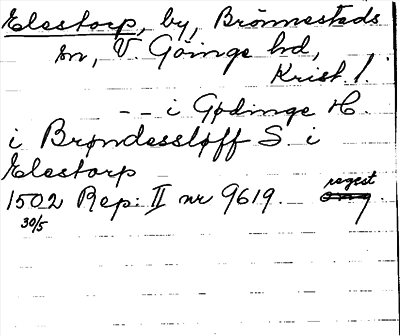 Elestorp, by, Brönnestads
sn, V. Göinge hd,
Krist. l.
- - i Gødinge H.
i Brøndessløff S. i
Elestorp
1502 Rep. II nr 9619. regest
30/5